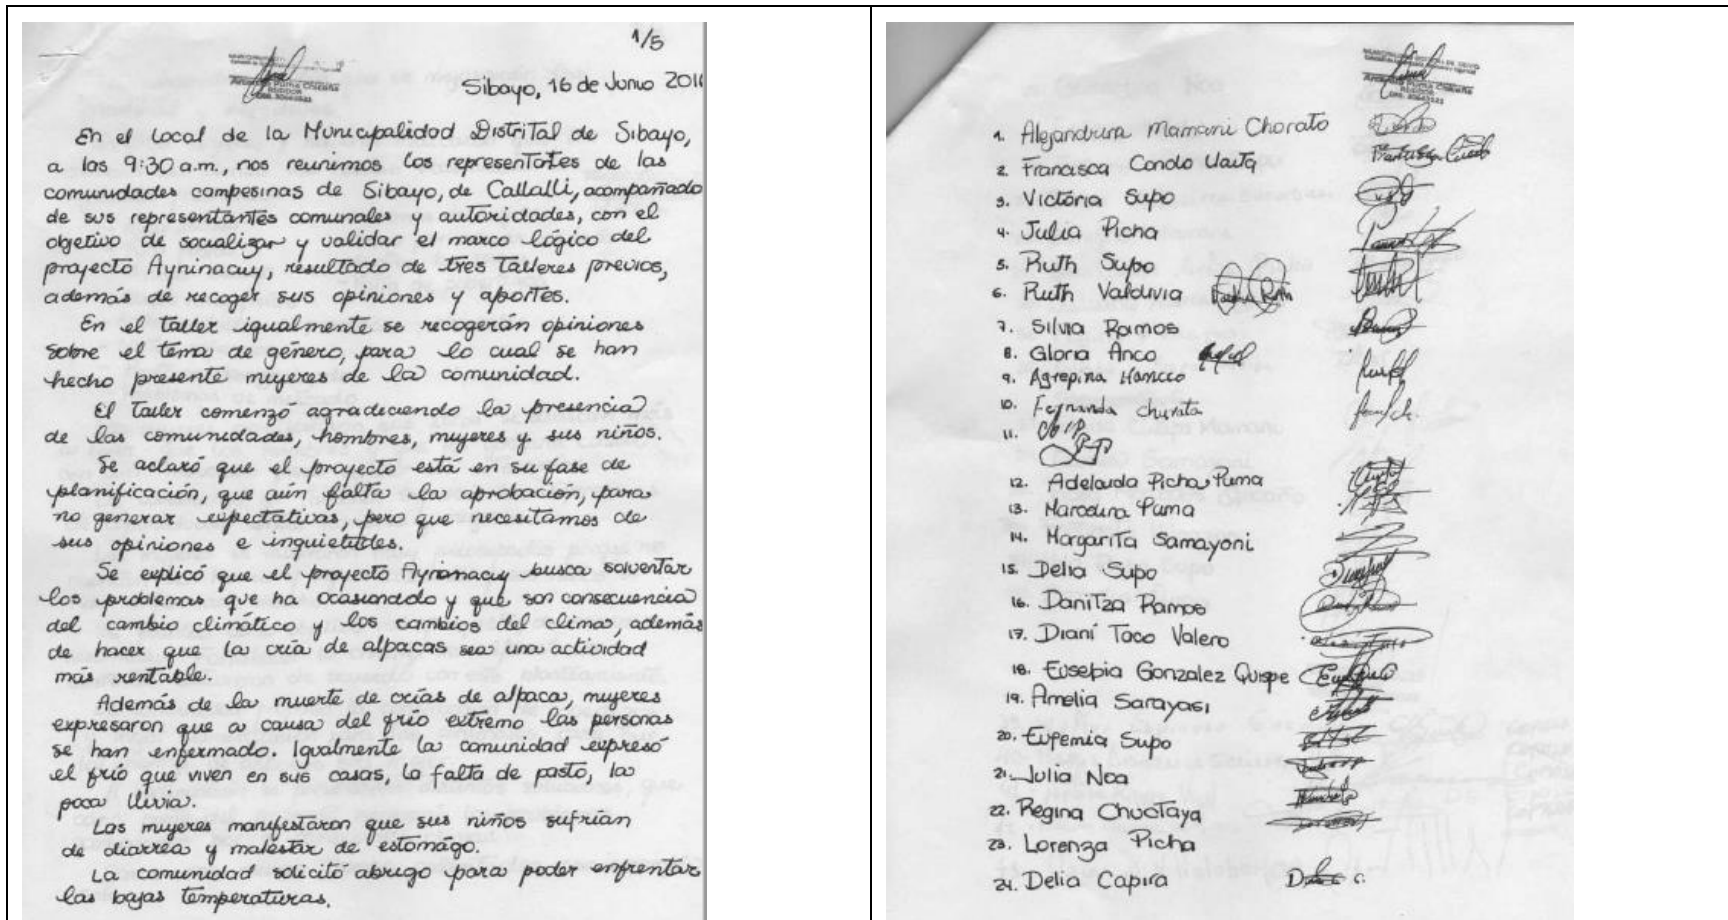 1/5
Sibayo, 16 de Junio 201
En el local de la Municipalidad Distrital de Sibayo,
a las 9:30 a.m., nos reunimos los representantes de las
comunidades campesinas de Sibayo, de Callalli, acompañado
de sus representantes comunales y autoridades, con el
objetivo de socializar y validar el marco lógico del
proyecto Ayninacuy, resultado de tres talleres previos,
además de recoger sus opiniones y aportes.
En el taller igualmente se recogerán opiniones
sobre el tema de género, para lo cual se han
hecho presente mujeres de la comunidad.
El taller comenzó agradeciendo la presencia
de las comunidades, hombres, mujeres y sus niños.
Se aclaró que el proyecto está en su fase de
planificación, que aún falta la aprobación, para
no generar expectativas, pero que necesitamos de
sus opiniones e inquietudes.
Se explicó que el proyecto Ayninacuy busca solventar
los problemas que ha ocasionado y que son consecuencia
del cambio climático y los cambios del clima, además
de hacer que la cría de alpacas sea una actividad
más rentable.
Además de la muerte de crías de alpaca, mujeres
expresaron que a causa del frío extremo las personas
se han enfermado. Igualmente la comunidad expresó
el frío que viven en sus casas, la falta de pasto, la
poca lluvia.
Las mujeres manifestaron que sus niños sufrían
de diarrea y malestar de estomágo.
La comunidad solicitó abrigo para poder enfrentar
las bajas temperaturas.
1. Alejandrina Mamani Chorato
2. Francisca Condo Llaita
3. Victoria Supo
4. Julia Picha
5. Ruth Supo
6. Ruth Valdivia
7. Silvia Ramos
8. Gloria Anco
9. Agrepina Hancco
10. Fernanda churata
11.
12. Adelaida Picha Puma
13. Marcelina Puma
14. Margarita Samayoni
15. Delia Supo
16. Danitza Ramos
17. Diani Taco Valero
18. Eusebia Gonzalez Quispe
19. Amelia Sarayasi
20. Eufemia Supo
21. Julia Noa
22. Regina Chuctaya
23. Lorenza Picha
24. Delia Capira